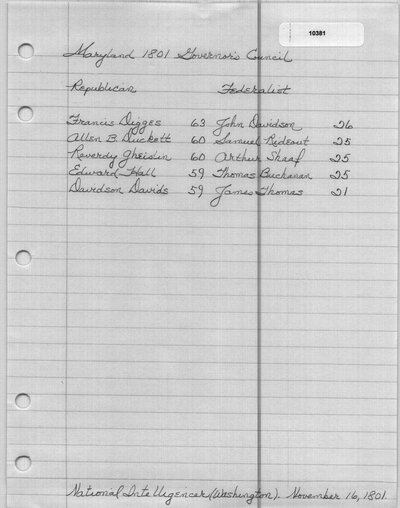 10381
Maryland 1801 Governor's Council
Republican Federalist
Francis Digges 63 John Davidson 26
Allen B. Duckett 60 Samuel Rideout 25
Reverdy Gheislin 60 Arthur Shaaf 25
Edward Hall 59 Thomas Buchanan 25
Davidson Davids 59 James Thomas 21
National Intelligencer (Washington). November 16, 1801.